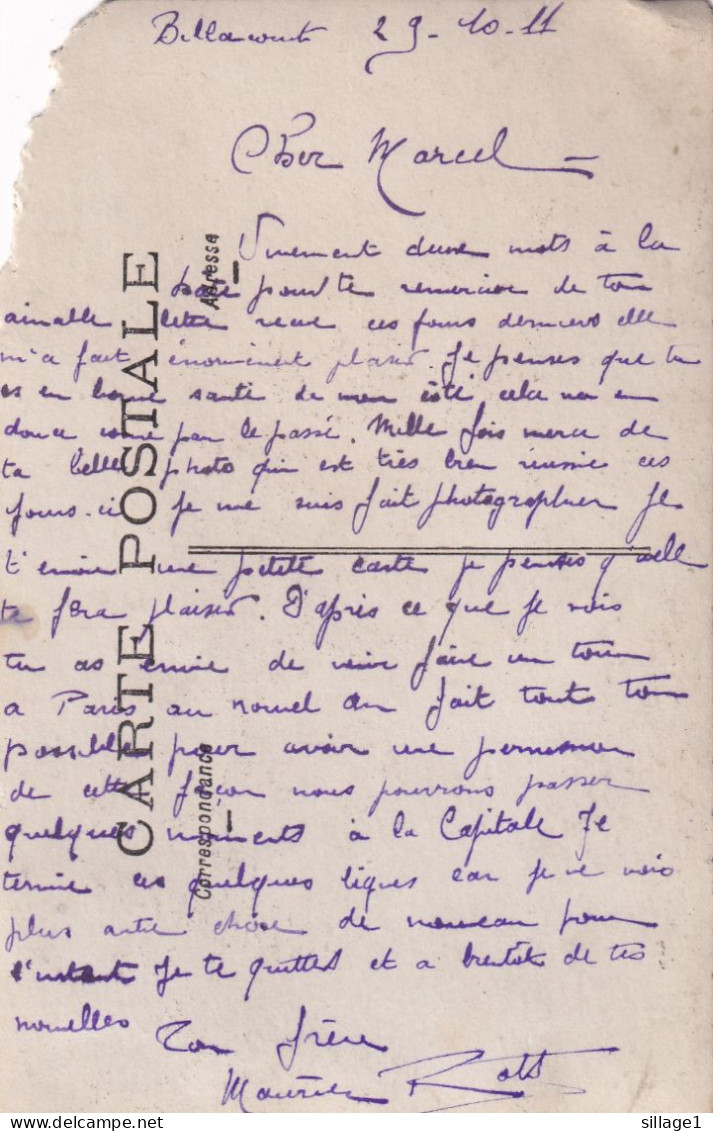 Billancourt 29-10-11
Cher Marcel
Vivement deux mots à la
pour te remercier de ton
aimable lettre recue ces jours derniers elle
m'a fait énormement plaisir. Je penses que tu
es en bonne santé de mon côté cela va en
douce comme par le passé. Mille fois merci de
ta belle photo qui est très bien réussie ces
jours-ci je me suis fait photographier Je
t'envoie une petite carte je penses qu'elle
te fera plaisir. D'après ce que je vois
tu as envie de venir faire un tour
a Paris au nouvel an fait tout ton
possible pour avoir une permission
de cette façon nous pourrons passer
quelques moments à la Capitale Je
termine ces quelques lignes car je ne vois
plus autre chose de nouveau pour
l'instant Je te quittes et a bientôt de tes
nouvelles
Ton frère
Maurice
CARTE POSTALE
Correspondance
Adresse
sillage1